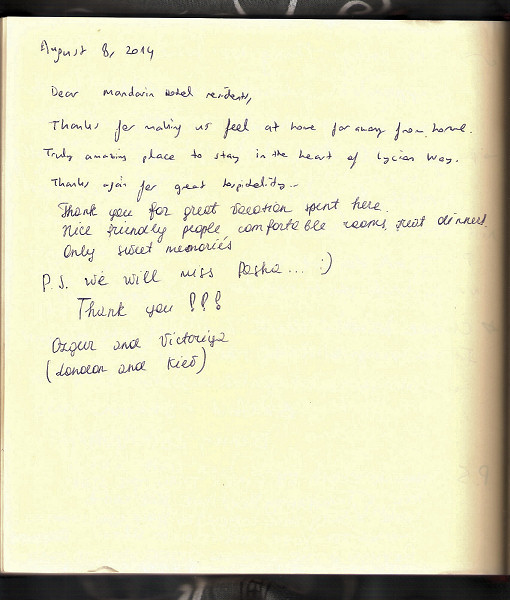 August 8, 2014
Dear mandarin hotel residents,
Thanks for making us feel at home far away from home.
Truly amazing place to stay in the heart of Lycian Way.
Thanks again for great hospitality..
Thank you for great vacation spent here.
Nice friendly people comfortable rooms, great dinners.
Only sweet memories
P.S. we will miss Pasha... :)
Thank you !!!
Ozgur and Victoriya
(London and Kiev)